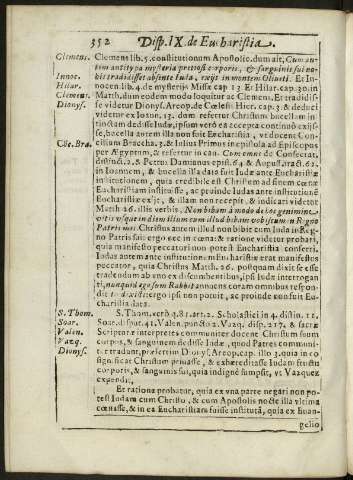 352 Disp. IX. de Eucharistia.
Clemens. Clemens lib. 5. constitutionum Apostolic. dum ait, Cum au-
tem antitypa mysteria pretiosi corporis, & sanguinis sui no-
Innoc. bis tradidisset absente Iuda, exijt in montem Oliueti. Et In-
Hilar. nocen. lib. 4. de mysterijs Missæ cap. 13 Et Hilar. cap. 30. in
Clemens. Matth. dum eodem modo loquitur ac Clemens. Et tradidis-
Dionys. se videtur Dionys. Areop. de Cœlesti Hier. cap. 3. & deduci
videtur ex Ioann. 13. dum refertur Christum bucellam in-
tinctam dedisse Iudæ, ipsum verò ea accepta continuò exijs-
se, bucella autem illa non fuit Eucharistia, vt docent Con-
Cōc. Bra. cilium Bracha. 3. & Iulius Primus in epistola ad Episcopos
per Ægyptum, & refertur in can. Cum omne de Consecrat.
distinct. 2. & Petrus Damianus epist. 64. & August. tract. 62.
in Ioannem, & bucella illa data fuit Iudæ ante Eucharistiæ
institutionem, quia credibile est Christum ad finem cœnæ
Eucharistiam instituisse, ac proinde Iudas ante institutionē
Eucharistiæ exijt, & illam non recepit, & indicari videtur
Matth. 26. illis verbis, Non bibam à modo de hoc genimine vi-
tis vsque in diem illum cum illud bibam vobiscum in Regno
Patris mei: Christus autem illud non bibit cum Iuda in Reg-
no Patris sui: ergo nec in cœna: & ratione videtur probari,
quia manifesto peccatori non potest Eucharistia conferri.
Iudas autem ante institutionem Eucharistiæ erat manifestus
peccator, quia Christus Matth. 26. postquam dixit se esse
tradendum ab vno ex discumbentibus, ipse Iudæ interrogan
ti, nunquid ego sum Rabbi? annuens coram omnibus respon-
dit tu dixisti: ergo ipsi non potuit, ac proinde non fuit Eu-
charistia data.
S. Thom. S. Thom. verò q. 81. art. 2. Scholastici in 4. distin. 11.
Soar. Soar. disput. 41. Valen. puncto 2. Vazq. disp. 217. & sacræ
Valen. Scripturæ interpretes communiter docent Christum suum
Vazq. corpus, & sanguinem dedisse Iudæ, quod Patres communi-
Dionys. ter tradunt, præsertim Dionys. Areop. cap. illo 3. quia in co
significat Christum priuasse, & exhæreditasse Iudam fructu
corporis, & sanguinis sui, quia indignè sumpsit, vt Vazquez
expendit,
Et ratione probatur, quia ex vna parte negari non po-
test Iudam cum Christo, & cum Apostolis nocte illa vltima
cœnasse, & in ea Eucharistiam fuisse institutā, quia ex Euan-
gelio